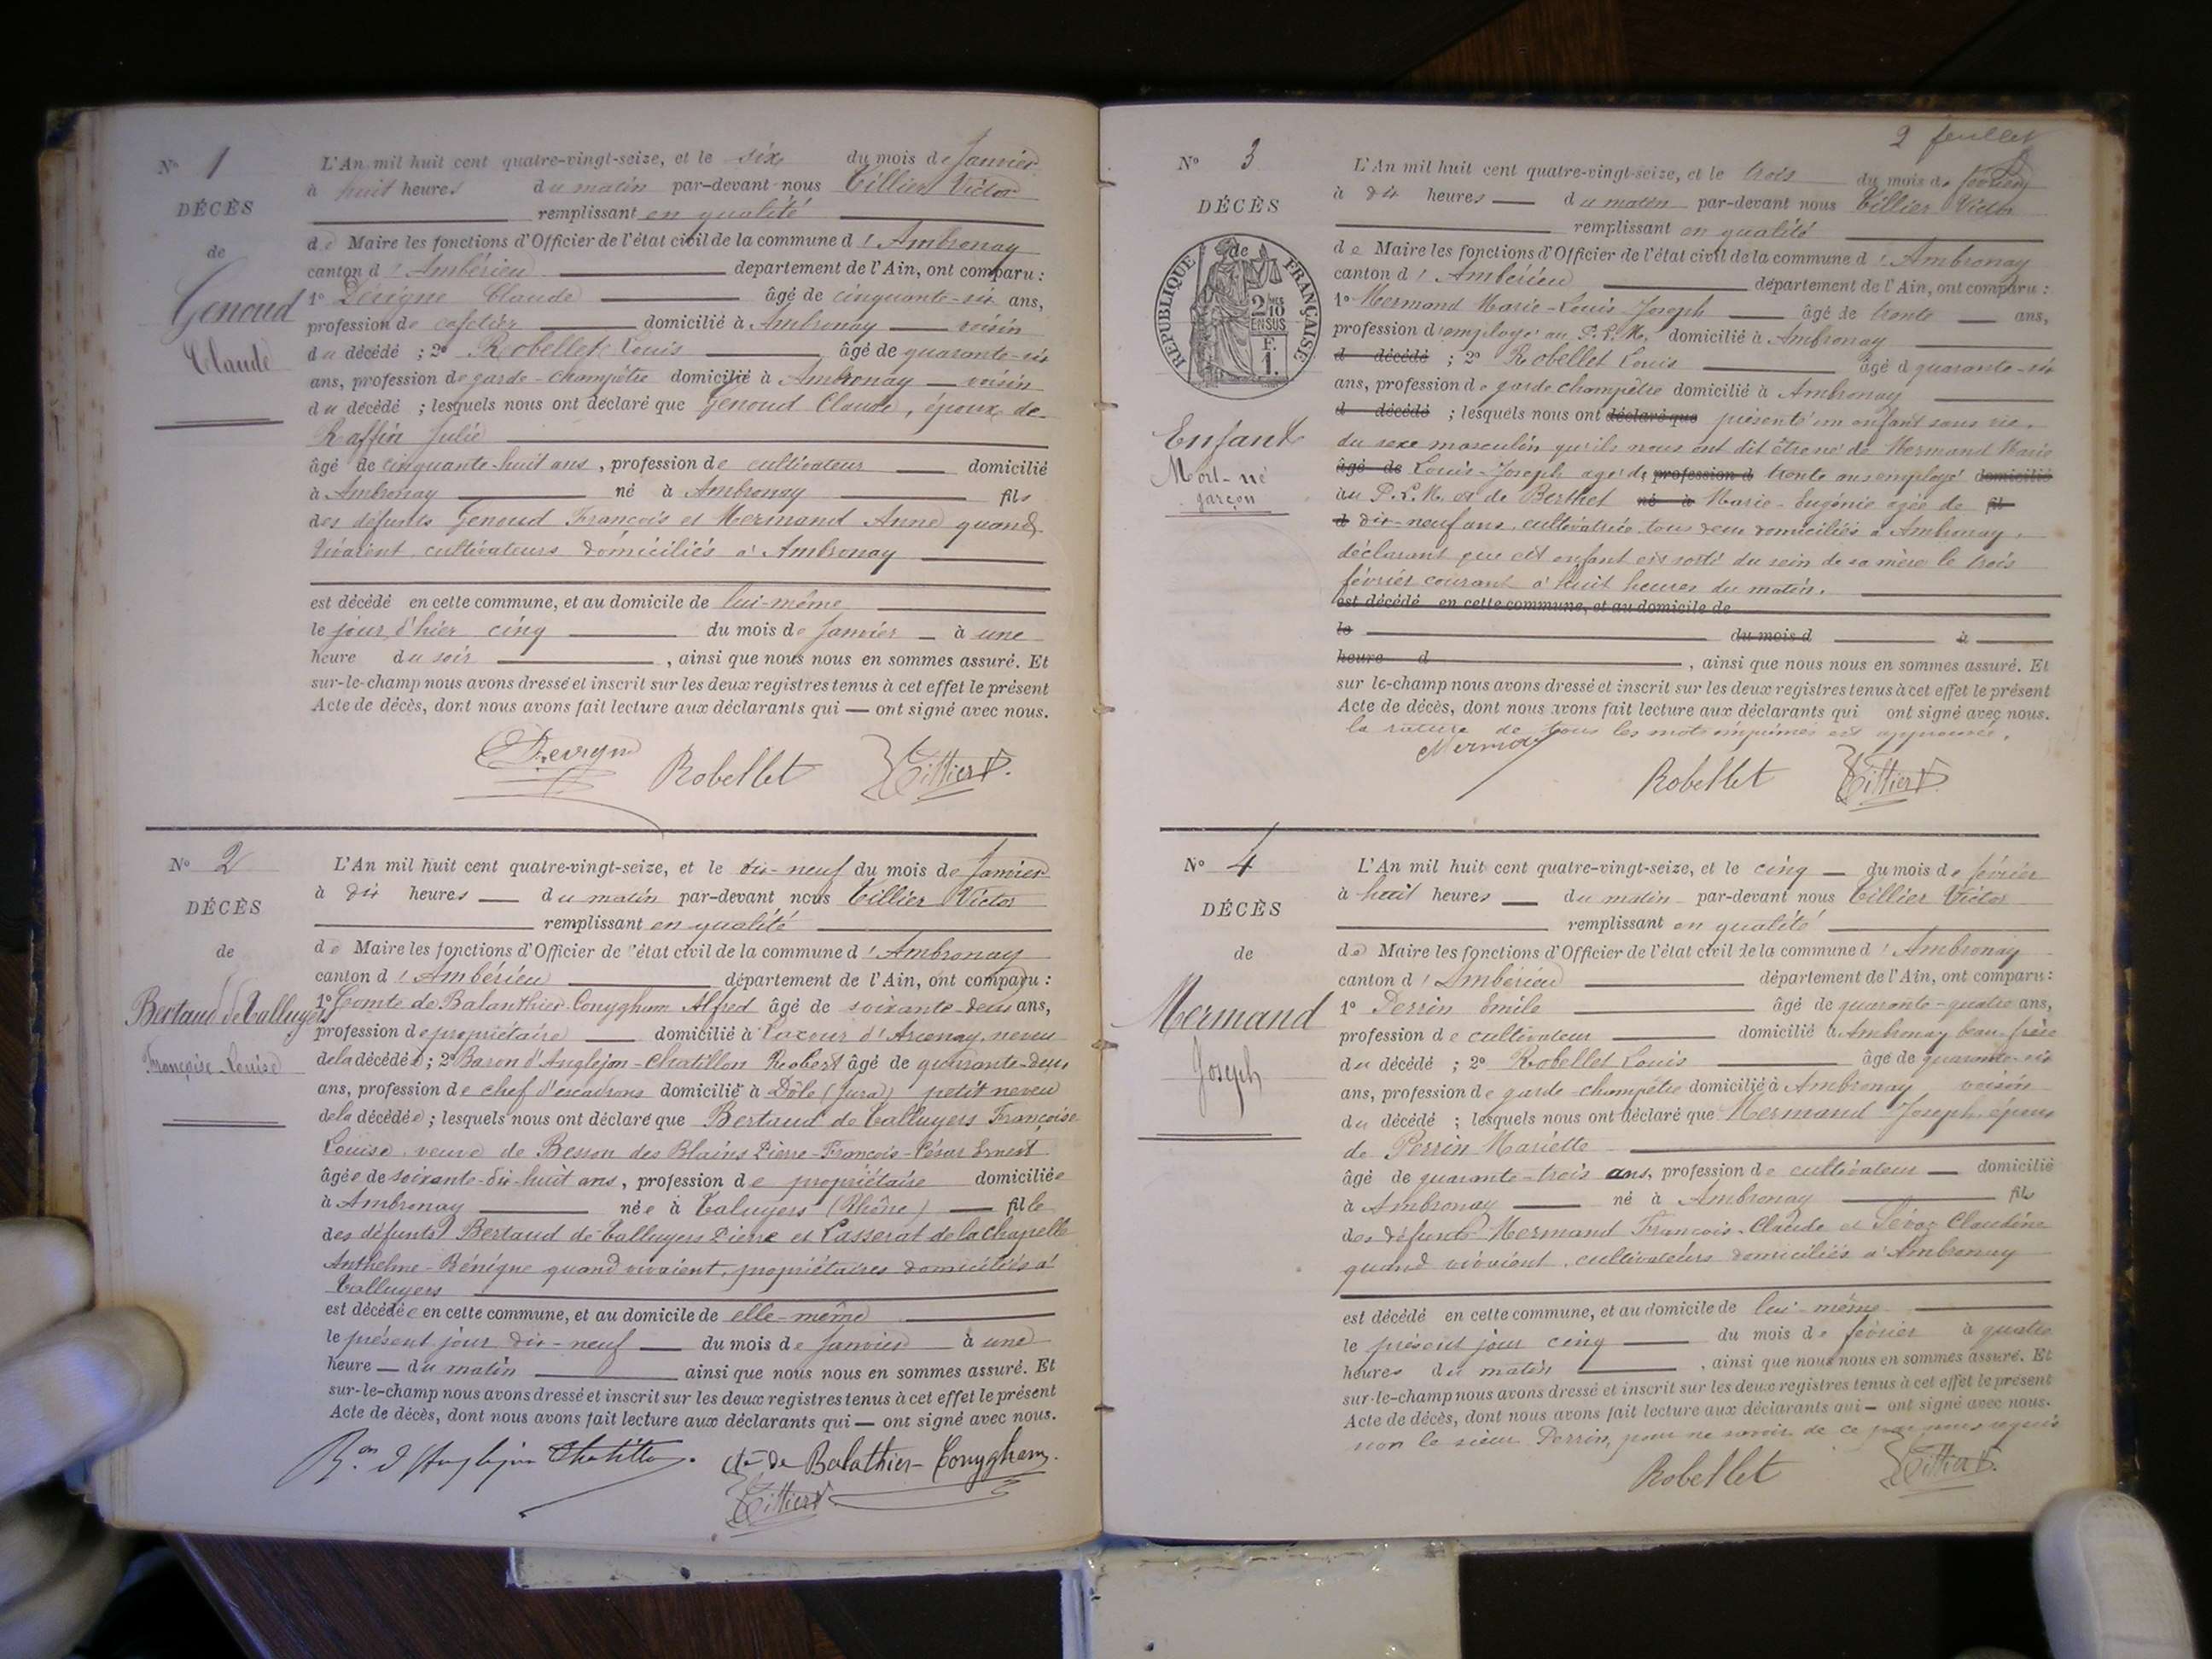 N° 1
DÉCÈS
de
Genoud
Claude
L'An mil huit cent quatre-vingt-seize, et le six du mois de Janvier
à huit heures du matin par-devant nous Tillier Victor
remplissant en qualité
de Maire les fonctions d'Officier de l'état civil de la commune d'Ambronay
canton d'Ambérieu département de l'Ain, ont comparu :
1° Dévigne Claude âgé de cinquante-six ans,
profession de cafetier domicilié à Ambronay voisin
du décédé ; 2° Robellet Louis âgé de quarante-six
ans, profession de garde-champêtre domicilié à Ambronay voisin
du décédé ; lesquels nous ont déclaré que Genoud Claude, époux de
Raffin Julie
âgé de cinquante-huit ans, profession de cultivateur domicilié
à Ambronay né à Ambronay fils
des défunts Genoud François et Mermand Anne quand
vivaient cultivateurs domiciliés à Ambronay
est décédé en cette commune, et au domicile de lui-même
le jour d'hier cinq du mois de Janvier à une
heure du soir, ainsi que nous nous en sommes assuré. Et
sur-le-champ nous avons dressé et inscrit sur les deux registres tenus à cet effet le présent
Acte de décès, dont nous avons fait lecture aux déclarants qui — ont signé avec nous.
Robellet Tillier V.
N° 2
DÉCÈS
de
Bertaud de Talluyers
Françoise Louise
L'An mil huit cent quatre-vingt-seize, et le dix-neuf du mois de Janvier
à dix heures — du matin par-devant nous Tillier Victor
remplissant en qualité
de Maire les fonctions d'Officier de l'état civil de la commune d'Ambronay
canton d'Ambérieu département de l'Ain, ont comparu :
1° Comte de Balanthier Conyghem Alfred âgé de soixante-deux ans,
profession de propriétaire domicilié à Lacour d'Arcenay, neveu
de la décédée ; 2° Baron d'Anglejan-Chatillon Robert âgé de quarante-deux
ans, profession de chef d'escadrons domicilié à Dôle (Jura) petit neveu
de la décédée ; lesquels nous ont déclaré que Bertaud de Talluyers Françoise
Louise, veuve de Besson des Blains Pierre-François-César Ernest
âgée de soixante-dix-huit ans, profession de propriétaire domiciliée
à Ambronay née à Taluyers (Rhône) — fille
des défunts Bertaud de Talluyers Pierre et Lasserat de la chapelle
Anthelme-Bénigne quand vivaient, propriétaires domiciliés à
Talluyers
est décédée en cette commune, et au domicile de elle-même
le présent jour dix-neuf du mois de Janvier à une
heure — du matin ainsi que nous nous en sommes assuré. Et
sur-le-champ nous avons dressé et inscrit sur les deux registres tenus à cet effet le présent
Acte de décès, dont nous avons fait lecture aux déclarants qui — ont signé avec nous.
Bon d'Anglejan Chatillon. Cte de Balathier-Conyghem.
Tillier V.
2 feuillet
N° 3
DÉCÈS
de
RÉPUBLIQUE FRANÇAISE
2/10 EN SUS
F.
1.
Enfant
Mort-né
garçon
L'An mil huit cent quatre-vingt-seize, et le trois du mois de février
à dix heures — du matin par-devant nous Tillier Victor
remplissant en qualité
de Maire les fonctions d'Officier de l'état civil de la commune d'Ambronay
canton d'Ambérieu département de l'Ain, ont comparu :
1° Mermand Marie-Louis-Joseph âgé de trente ans,
profession d'employé au P.L.M. domicilié à Ambronay
d décédé ; 2° Robellet Louis âgé de quarante-six
ans, profession de garde champêtre domicilié à Ambronay
d décédé ; lesquels nous ont déclaré que présenté un enfant sans vie,
du sexe masculin qu'ils nous ont dit être né de Mermand Marie
âgé de Louis-Joseph agé de profession d trente ans employé domicilié
au P.L.M. et de Berthet né à Marie-Eugénie agée de fil
d dix-neuf ans, cultivatrice, tous deux domiciliés à Ambronay,
déclarant que cet enfant est sorti du sein de sa mère le trois
février courant à huit heures du matin.
est décédé en cette commune, et au domicile de
le du mois d à
heure d, ainsi que nous nous en sommes assuré. Et
sur le-champ nous avons dressé et inscrit sur les deux registres tenus à cet effet le présent
Acte de décès, dont nous avons fait lecture aux déclarants qui ont signé avec nous.
la rature de tous les mots imprimés est approuvée.
Robellet Tillier V.
N° 4
DÉCÈS
de
Mermand
Joseph
L'An mil huit cent quatre-vingt-seize, et le cinq — du mois de février
à huit heures — du matin par-devant nous Tillier Victor
remplissant en qualité
de Maire les fonctions d'Officier de l'état civil de la commune d'Ambronay
canton d'Ambérieu département de l'Ain, ont comparu :
1° Perrin Emile âgé de quarante-quatre ans,
profession de cultivateur domicilié à Ambronay beau-frère
du décédé ; 2° Robellet Louis âgé de quarante-six
ans, profession de garde-champêtre domicilié à Ambronay voisin
du décédé ; lesquels nous ont déclaré que Mermand Joseph, époux
de Perrin Mariette
âgé de quarante-trois ans, profession de cultivateur — domicilié
à Ambronay né à Ambronay fils
des défunts Mermand François-Claude et Claudine
quand vivaient, cultivateurs domiciliés à Ambronay
est décédé en cette commune, et au domicile de lui-même
le présent jour cinq du mois de février à quatre
heures du matin, ainsi que nous nous en sommes assuré. Et
sur-le-champ nous avons dressé et inscrit sur les deux registres tenus à cet effet le présent
Acte de décès, dont nous avons fait lecture aux déclarants qui — ont signé avec nous.
non le sieur Perrin, pour ne savoir de ce par nous requis
Robellet Tillier V.